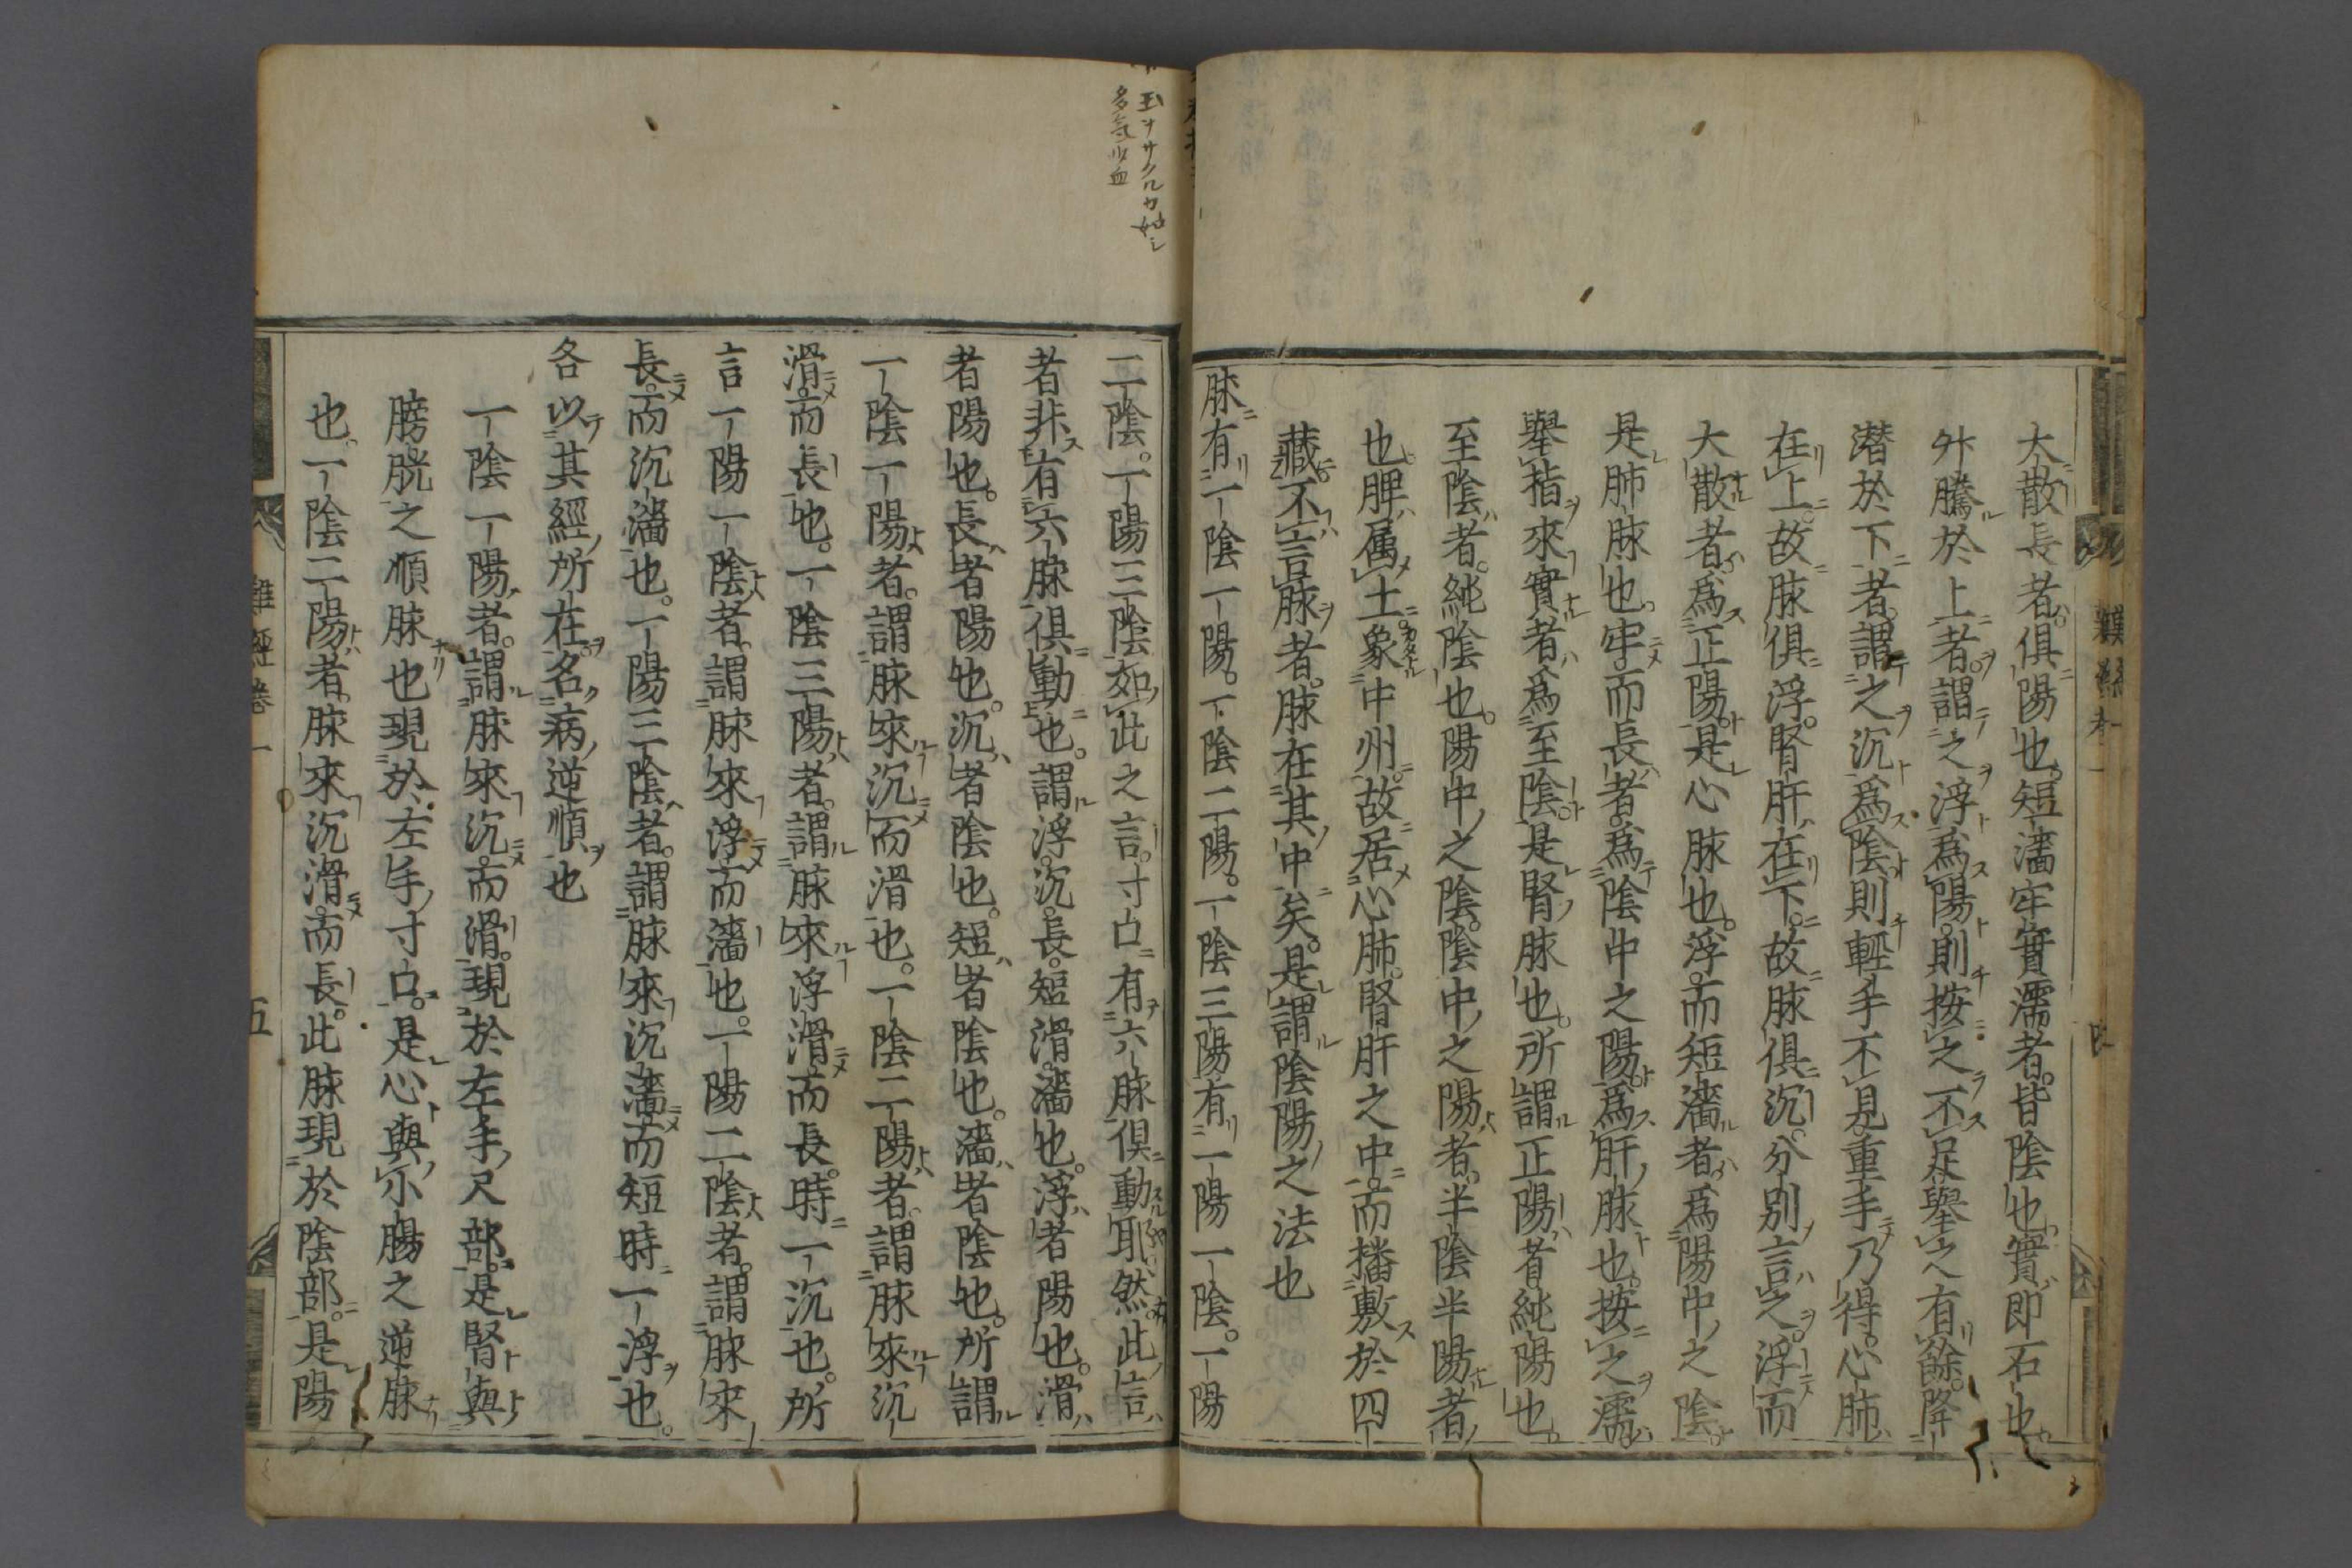 大散長者。俱陽也。短濇牢實濡者。皆陰也。實即石也。
升騰於上者。謂之浮爲陽。則按之不足。舉之有餘。降
潜於下者。謂之沉爲陰。則輕手不見。重手乃得。心肺
在上。故脉俱浮。腎肝在下。故脉俱沉。分別言之。浮而
大散者。爲正陽。是心脉也。浮而短濇者。爲陽中之陰。
是肺脉也。牢而長者。爲陰中之陽。爲肝脉也。按之濡。
舉指來實者。爲至陰。是腎脉也。所謂正陽者純陽也。
至陰者。純陰也。陽中之陰。陰中之陽者。半陰半陽者
也。脾属土。象中州。故居心肺。腎肝之中。而播敷於四
藏。不言脉者。脉在其中矣。是謂陰陽之法也
脉有一陰一陽。一陰二陽。一陰三陽。有一陽一陰。一陽
二陰。一陽三陰。如此之言。寸口有六脉俱動耶。然。此言
者非有六脉俱動也。謂浮。沉。長。短滑。濇也。浮者陽也。滑
者陽也。長者陽也。沉者陰也。短者陰也。濇者陰也。所謂
一陰一陽者。謂脉來沉而滑也。一陰二陽者。謂脉來沉
滑而長也。一陰三陽者。謂脉來浮滑而長。時一沉也。所
言一陽一陰者。謂脉來浮而濇也。一陽二陰者。謂脉來
長。而沉濇也。一陽三陰者。謂脉來沉濇而短時一浮也。
各以其經所在。名病逆順也
一陰一陽者。謂脉來沉。而滑。現於左手尺部。是腎與
膀胱之順脉也現於左手寸口。是心與小腸之逆脉
也。一陰二陽者。脉來沉滑。而長。此脉現於陰部。是陽
難經卷一
五
玉ヲサクルカ如シ
多氣少血